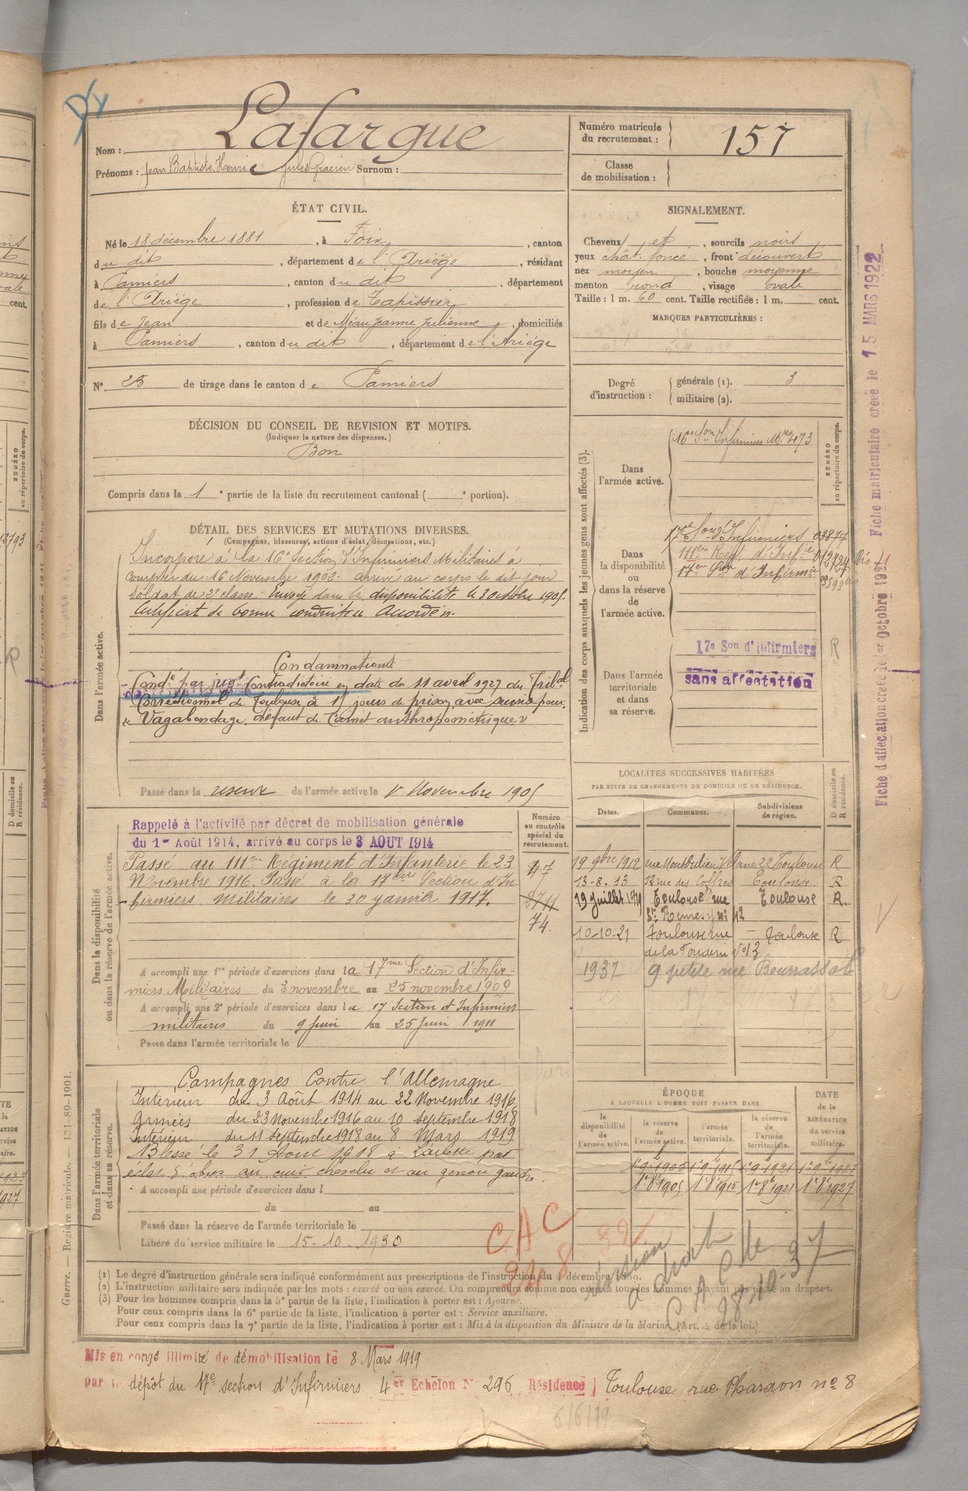 Lafargue
Nom :
Prénoms : Jean Baptiste Henri Jules Surnom :
Numéro matricule du recrutement : 157
Classe de mobilisation :
ÉTAT CIVIL.
Né le 18 décembre 1881, à Foix, canton
du dit, département de l'Ariège, résidant
à Pamiers, canton du dit, département
de l'Ariège, profession de Tapissier
fils de Jean et de Jeanne Julienne, domiciliés
à Pamiers, canton du dit, département de l'Ariège
N° 25 de tirage dans le canton de Pamiers
SIGNALEMENT.
Cheveux et, sourcils noirs
yeux chât. foncé, front découvert
nez moyen, bouche moyenne
menton rond, visage ovale
Taille : 1 m. 60 cent. Taille rectifiée : 1 m. cent.
MARQUES PARTICULIÈRES :
Degré d'instruction : générale (1). 3
militaire (2).
DÉCISION DU CONSEIL DE REVISION ET MOTIFS.
(Indiquer la nature des dispenses.)
Bon
Compris dans la 1e partie de la liste du recrutement cantonal ( e portion).
DÉTAIL DES SERVICES ET MUTATIONS DIVERSES.
(Campagnes, blessures, actions d'éclat, décorations, etc.)
Dans l'armée active.
Incorporé à la 16e Section d'Infirmiers Militaires à
compter du 16 Novembre 1902. Arrivé au corps le dit jour
soldat de 2e classe. Envoyé dans la disponibilité le 3 octobre 1905.
Certificat de bonne conduite Accordé.
Condamnations
Condé par jugt Contradictoire en date du 11 avril 1927 du Tribal
Correctionnel de Toulouse à jours de prison avec sursis pour
"Vagabondage, défaut de Carnet anthropométrique"
Passé dans la réserve de l'armée active le 1r Novembre 1905
Indication des corps auxquels les jeunes gens sont affectés (3).
NUMÉRO au répertoire du corps.
Dans l'armée active.
16e Son Infirmiers Mres 473
Dans la disponibilité ou dans la réserve de l'armée active.
17e Son d'Infirmiers
111e Regt d'Infie
17e Son d'Infirmiers
Dans l'armée territoriale et dans sa réserve.
17e Son d'Infirmiers R
sans affectation
Fiche matriculaire créée le 15 MARS 1922
Fiche d'affectation créée le 1er Octobre 1921
Dans la disponibilité ou dans la réserve de l'armée active.
Rappelé à l'activité par décret de mobilisation générale
du 1er Août 1914, arrivé au corps le 3 AOUT 1914
Passé au 111e Régiment d'Infanterie le 23
Novembre 1916. Passé à la 17eme Section d'In-
firmiers Militaires le 30 janvier 1917.
Numéro au contrôle spécial du recrutement.
74.
A accompli une 1re période d'exercices dans la 17me Section d'Infir-
miers Militaires du 3 novembre au 25 novembre 1909
A accompli une 2e période d'exercices dans la 17 Section d'Infirmiers
militaires du 9 Juin au 25 Juin 1911
Passé dans l'armée territoriale le
LOCALITÉS SUCCESSIVES HABITÉES
PAR SUITE DE CHANGEMENTS DE DOMICILE OU DE RÉSIDENCE.
Dates. Communes. Subdivisions de région. D domicile ou R résidence.
19 9bre 1912 Toulouse R
13-8-13 12 rue des Coffres Toulouse R
Toulouse rue Toulouse R.
10-10-21 Toulouse rue - Toulouse R
1937 9 petite rue
Dans l'armée territoriale et dans sa réserve.
Campagnes Contre l'Allemagne
Intérieur du 3 Août 1914 au 22 Novembre 1916
Armées du 23 Novembre 1916 au 10 septembre 1918
Intérieur du 11 Septembre 1918 au 8 Mars 1919
Blessé le 31 Août 1918 à par
éclat d'obus au cuir chevelu et au genou gauche.
A accompli une période d'exercices dans l
du au
Passé dans la réserve de l'armée territoriale le
Libéré du service militaire le 15-10-1930
ÉPOQUE
À LAQUELLE L'HOMME DOIT PASSER DANS
la disponibilité de l'armée active. la réserve de l'armée active. l'armée territoriale. la réserve de l'armée territoriale.
DATE de la LIBÉRATION du service militaire.
1r 8bre 1905 1r 8bre 1915 1r 8bre 1921 1r 8bre 1927
CAC
28-10-37
(1) Le degré d'instruction générale sera indiqué conformément aux prescriptions de l'instruction du 4 décembre
(2) L'instruction militaire sera indiquée par les mots : exercé ou non exercé. On comprendra comme non exercés tous les hommes n'ayant pas passé au drapeau.
(3) Pour les hommes compris dans la 5e partie de la liste, l'indication à porter est : Ajourné.
Pour ceux compris dans la 6e partie de la liste, l'indication à porter est : Service auxiliaire.
Pour ceux compris dans la 7e partie de la liste, l'indication à porter est : Mis à la disposition du Ministre de la Marine (Art. 4 de la loi.)
Guerre. — Registre matricule. 131-89-1901.
Mis en congé illimité de démobilisation le 8 Mars 1919
par le dépôt du 17e section d'Infirmiers 4er Echelon N° 296 Résidence Toulouse rue Pharaon no 8
6/6/19